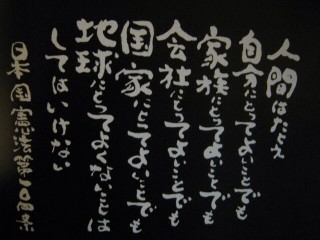 人間はたとえ
自分にとってよいことでも
家族にとってよいことでも
会社にとってよいことでも
国家にとってよいことでも
地球にとってよくないことは
してはいけない
日本国憲法第一〇四条